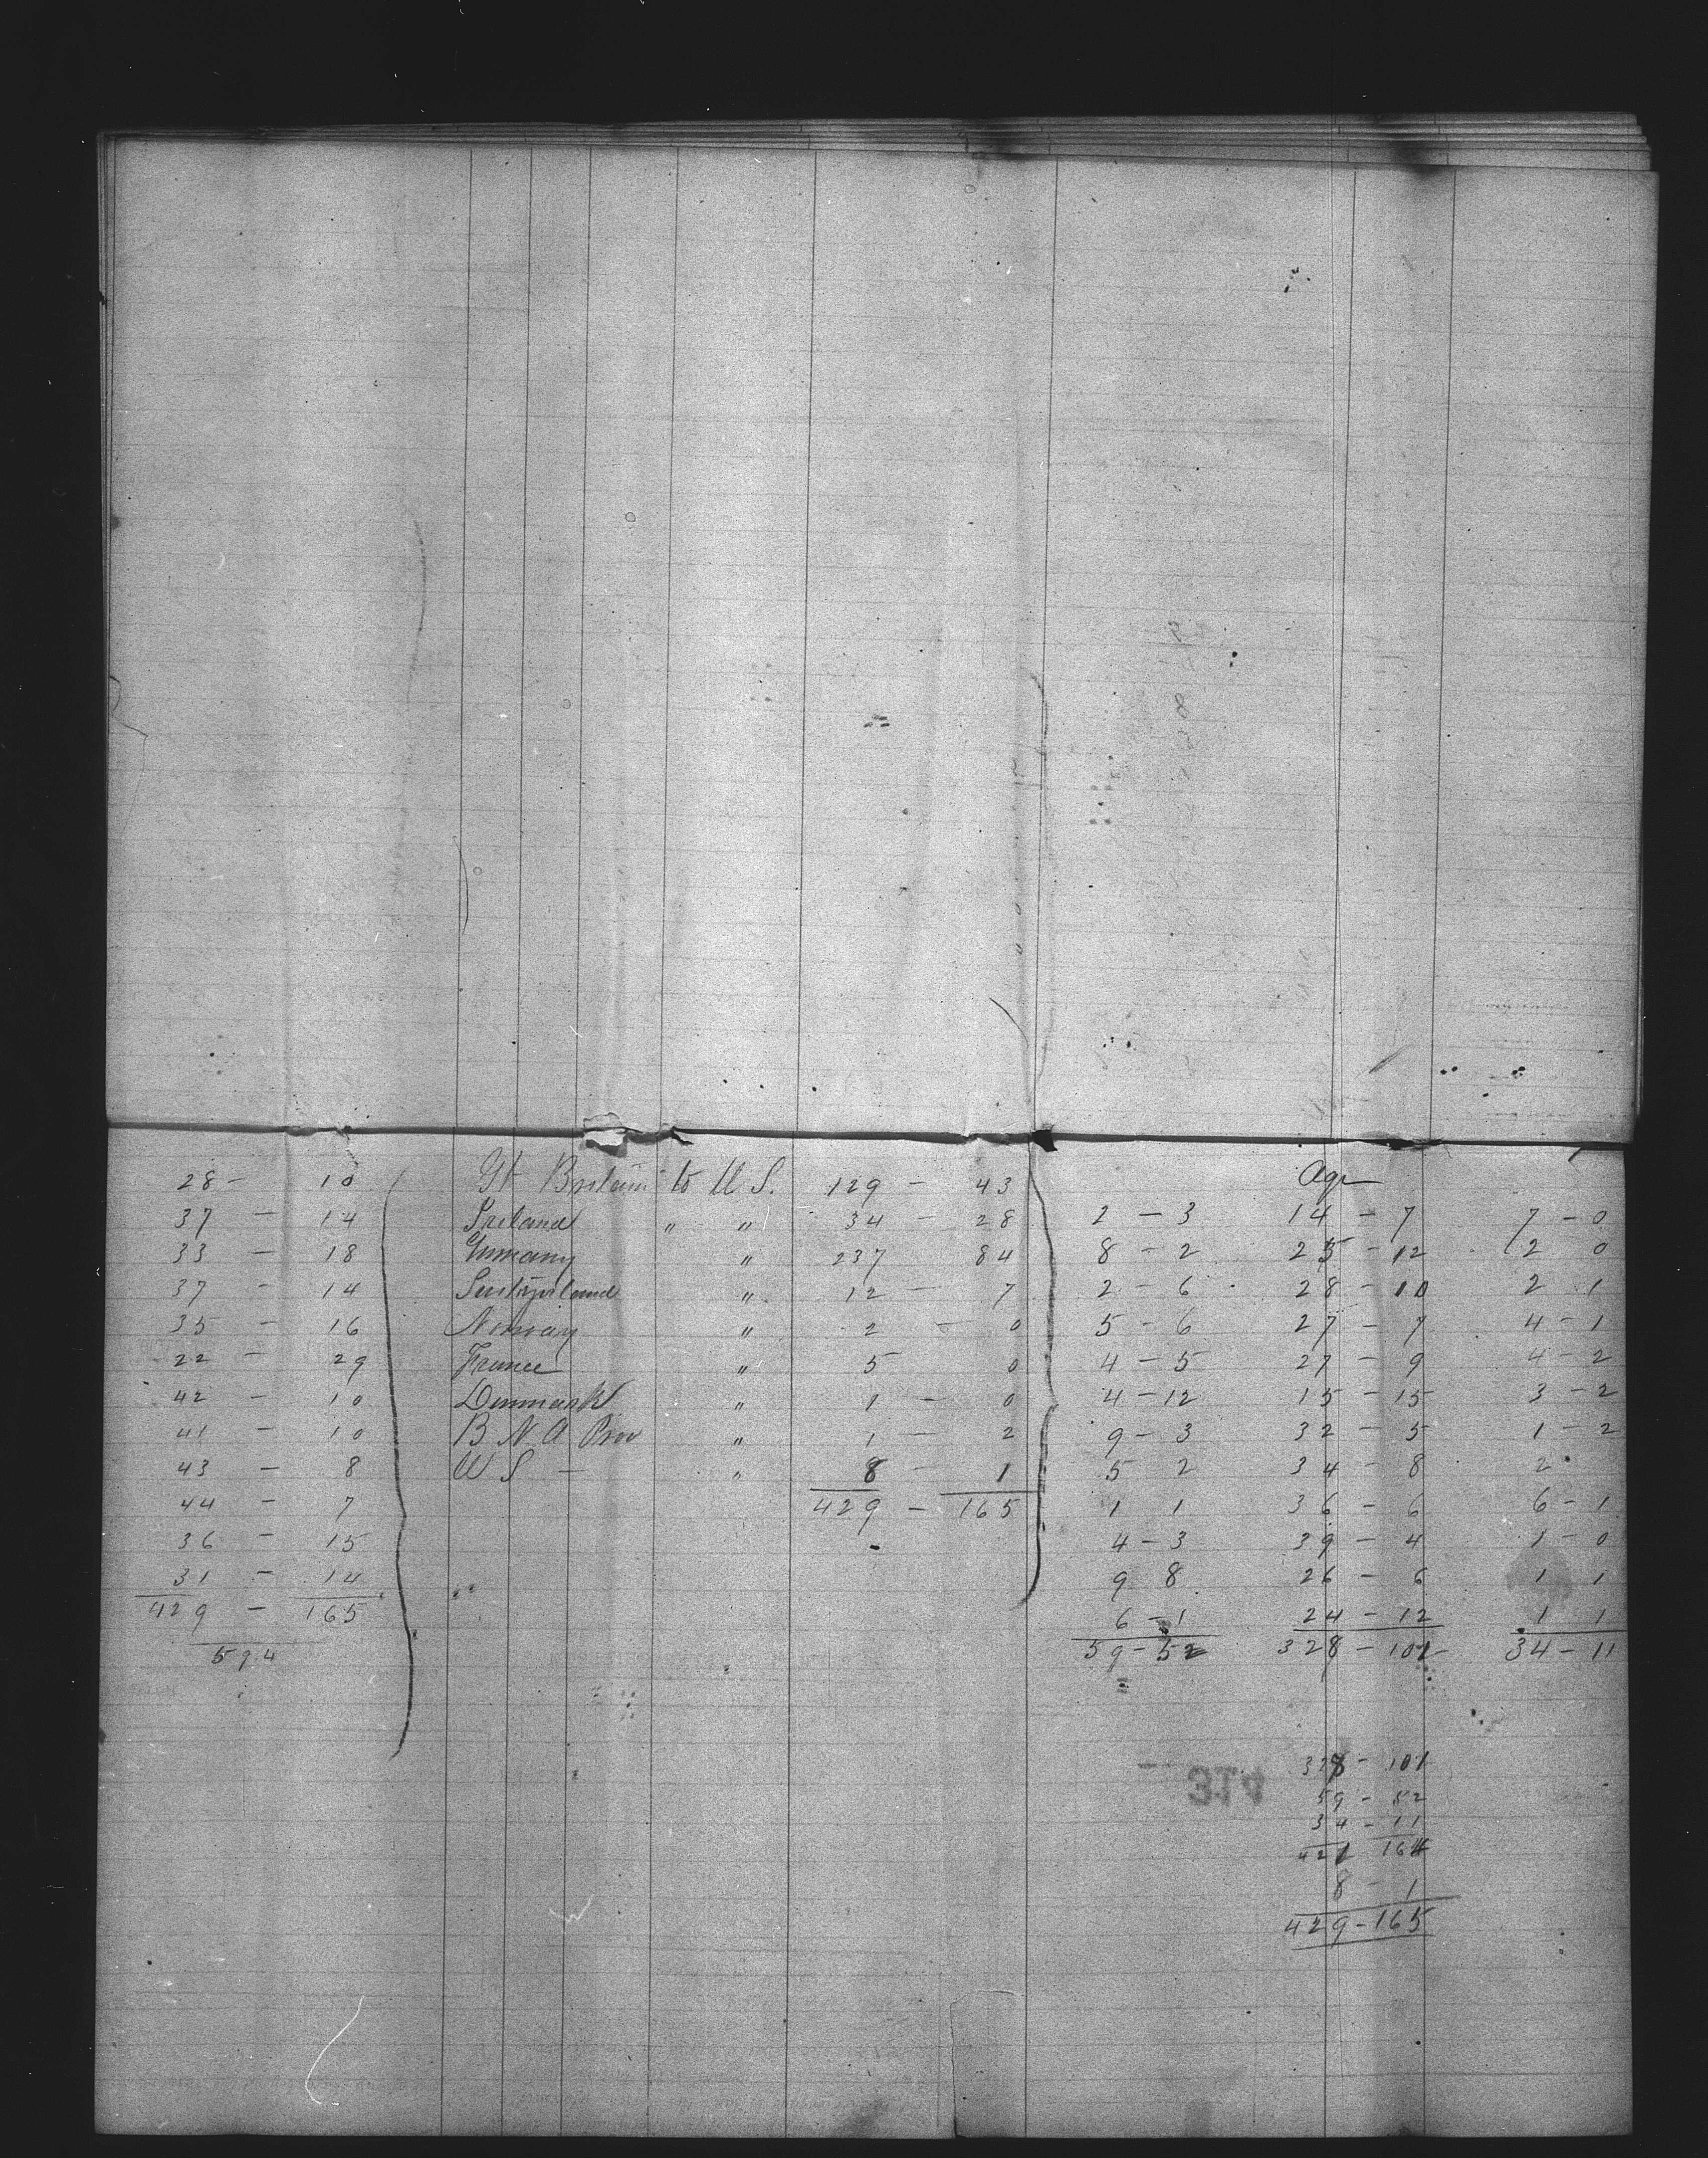 28 - 10 Gt Britain to U S. 129 - 43 Age
37 - 14 Ireland " " 34 - 28 2 - 3 14 - 7 7 - 0
33 - 18 Germany " 237 84 8 - 2 25 - 12 2 0
37 - 14 Switzerland " 12 - 7 2 - 6 28 - 10 2 1
35 - 16 Norway " 2 - 0 5 - 6 27 - 7 4 - 1
22 - 29 France " 5 0 4 - 5 27 - 9 4 - 2
42 - 10 Denmark " 1 - 0 4 - 12 15 - 15 3 - 2
41 - 10 B N A Prov " 1 - 2 9 - 3 32 - 5 1 - 2
43 - 8 U S - " 8 - 1 5 2 34 - 8 2
44 - 7 429 - 165 1 1 36 - 6 6 - 1
36 - 15 4 - 3 39 - 4 1 - 0
31 - 14 9 8 26 - 6 1 1
429 - 165 6 - 1 24 - 12 1 1
594 59 - 52 328 - 101 34 - 11
328 - 101
59 - 52
34 - 11
421 164
8 - 1
429 - 165
314